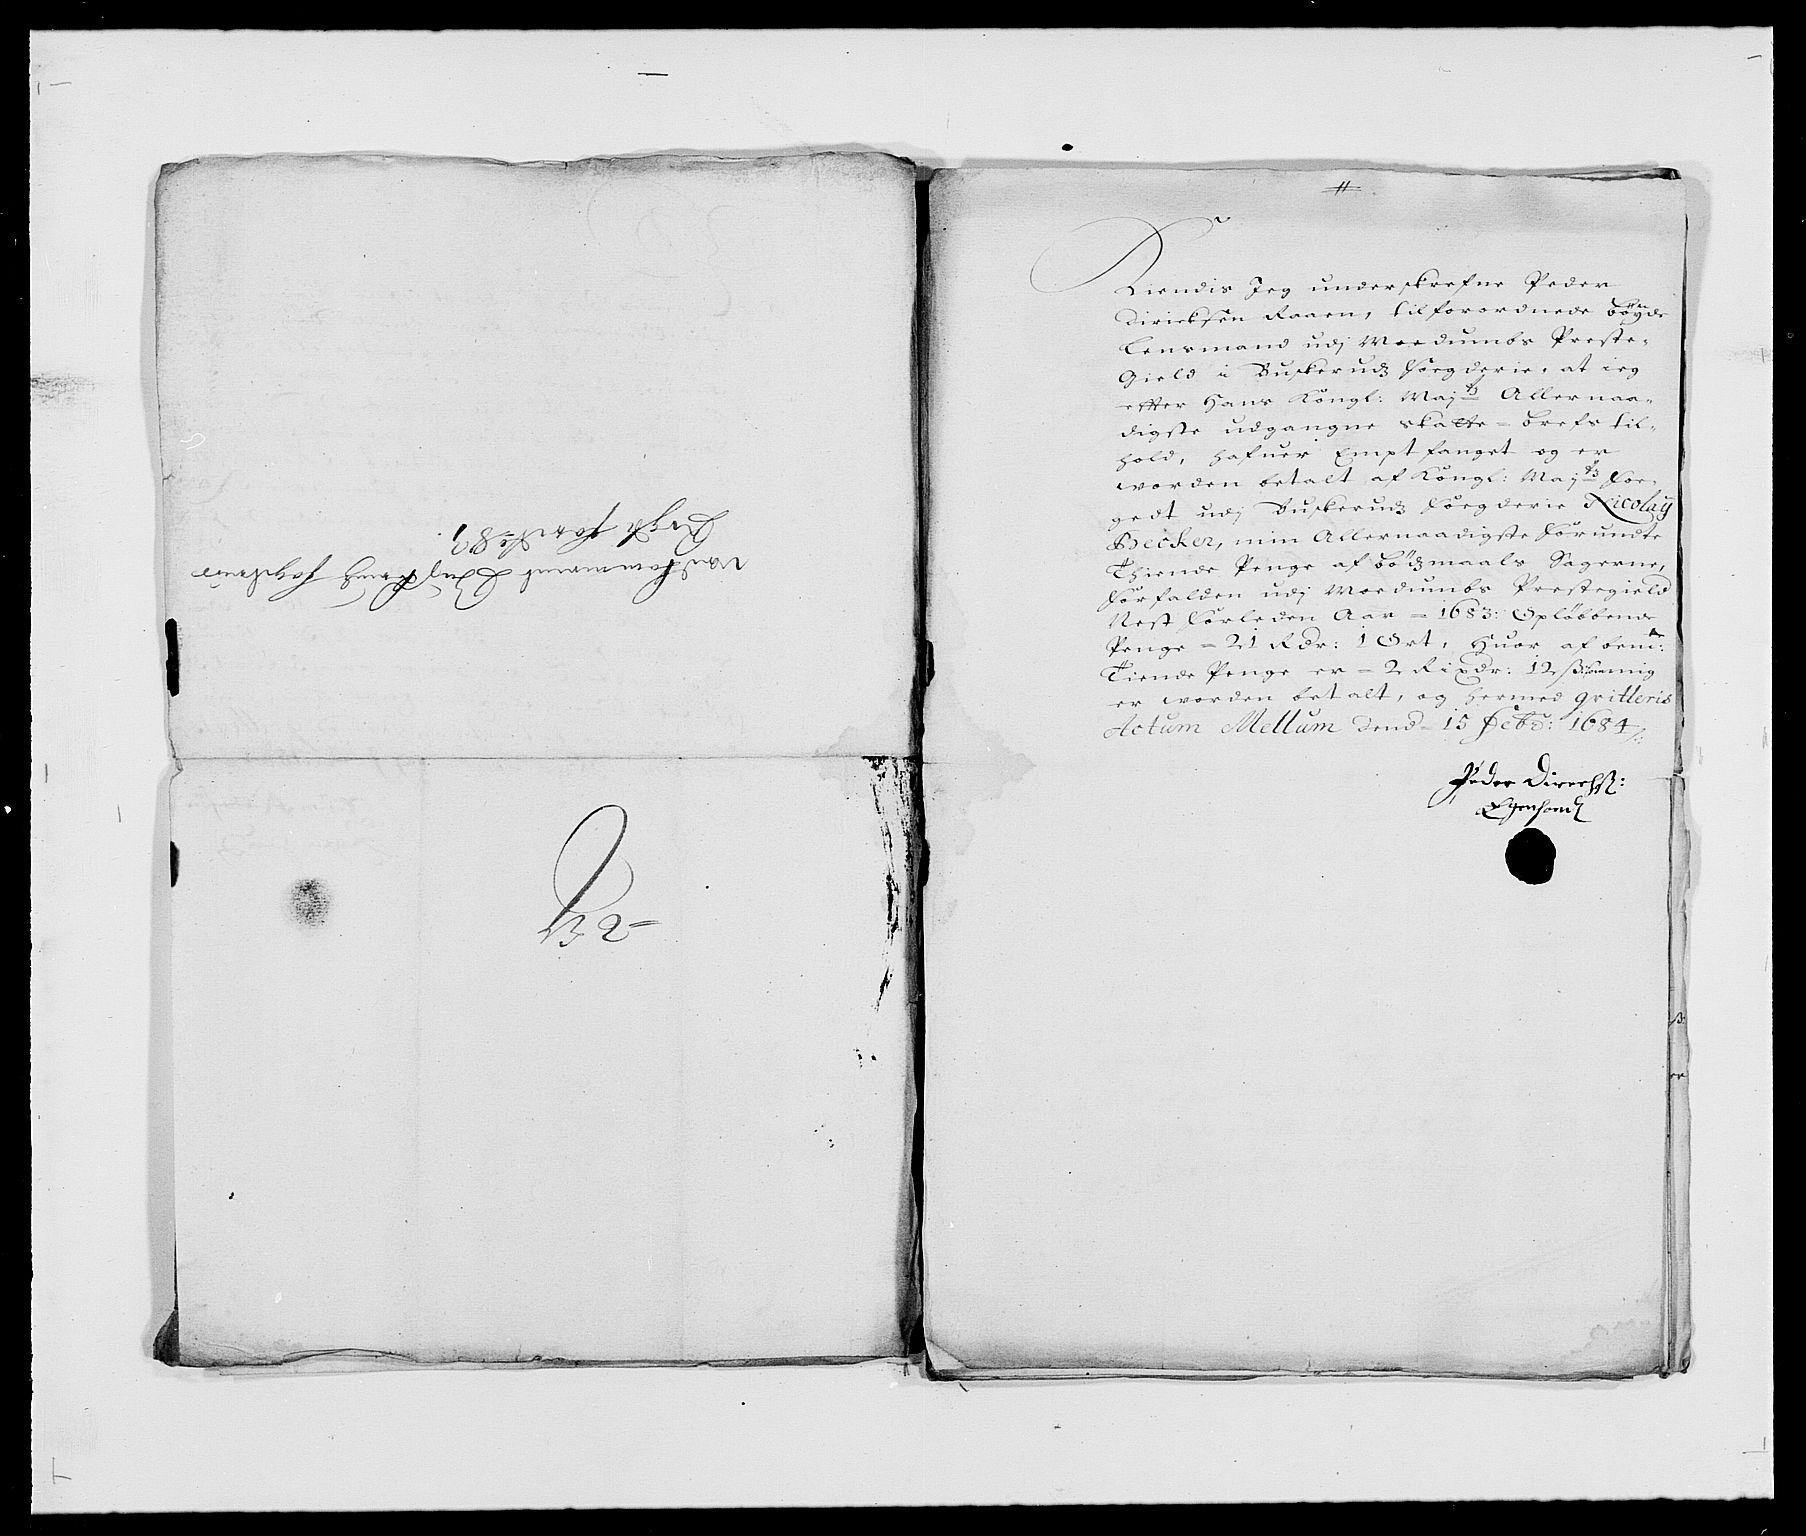 Regte for Ao 83
No 32
Kiendis Jeg underskrefne Peder
Diricksen Raaen, tilforordnede bøyde
Lensmand udj Moedumbs Preste-
Gield i Buskeruds Foegderie, at ieg
effter Hans Kongl: Maj:ts Allernaa-
digste udgangne skatte-brefs til-
hold, hafuer Emptfanget og er
worden betalt af Kongl: Maj:ts Foe-
gedt udj Buskeruds Foegderie Nicolaÿ
Becker, min Allernaadigste Forundte
Thiende Penge af bødsmaals Sagerne,
Forfalden udj Moedumbs Prestegield
Nest Forleden Aar = 1683: Opløbbende
Penge = 21 Rdr: 1 Ort, Huor af bem:te
Tiende Penge er = 2 Rixdr: 12 ß: som mig
er worden betalt, og hermed qvitteris
Actum Mellum dend = 15 Feb: 1684
Peder Direchß:
Egenhand